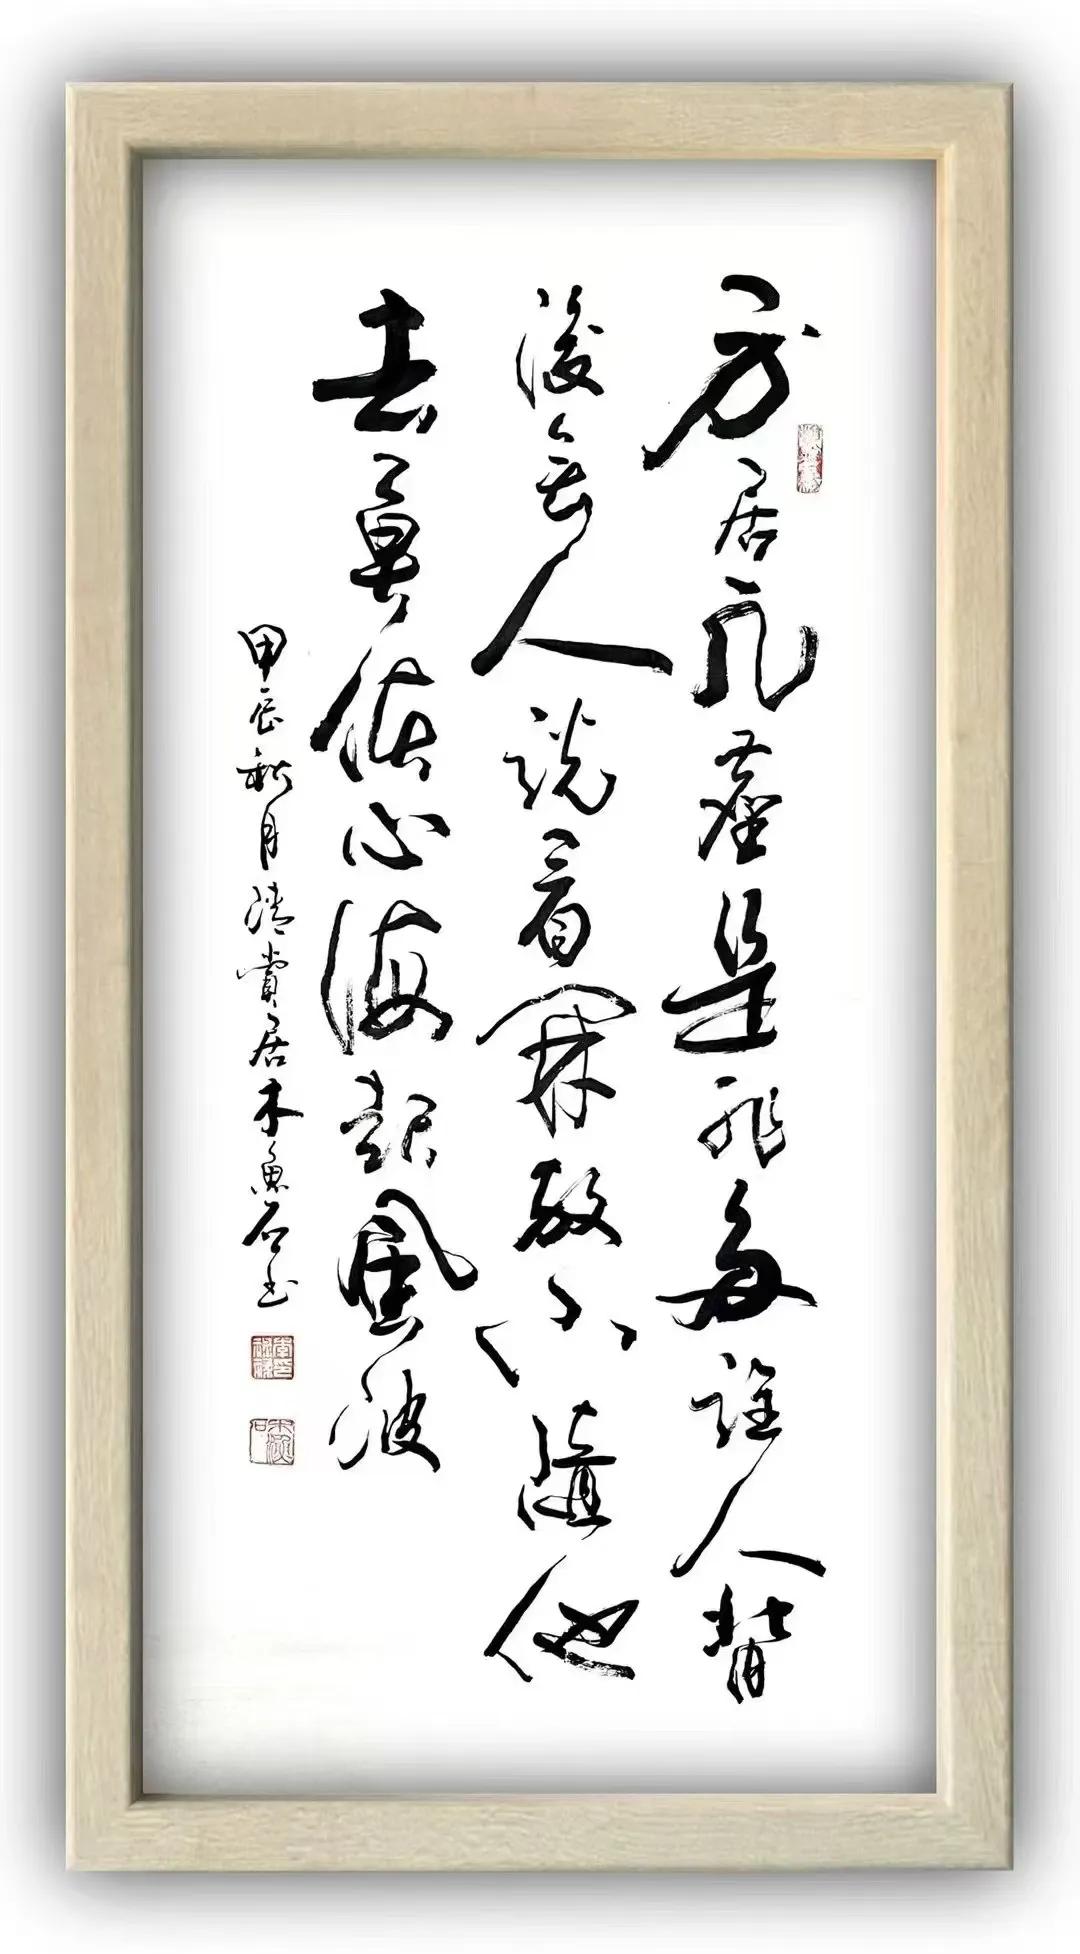 身居凡塵是非多誰人背
後無人說看開放下隨他
去莫使心海起風波
甲辰秋月清賞居木魚石書